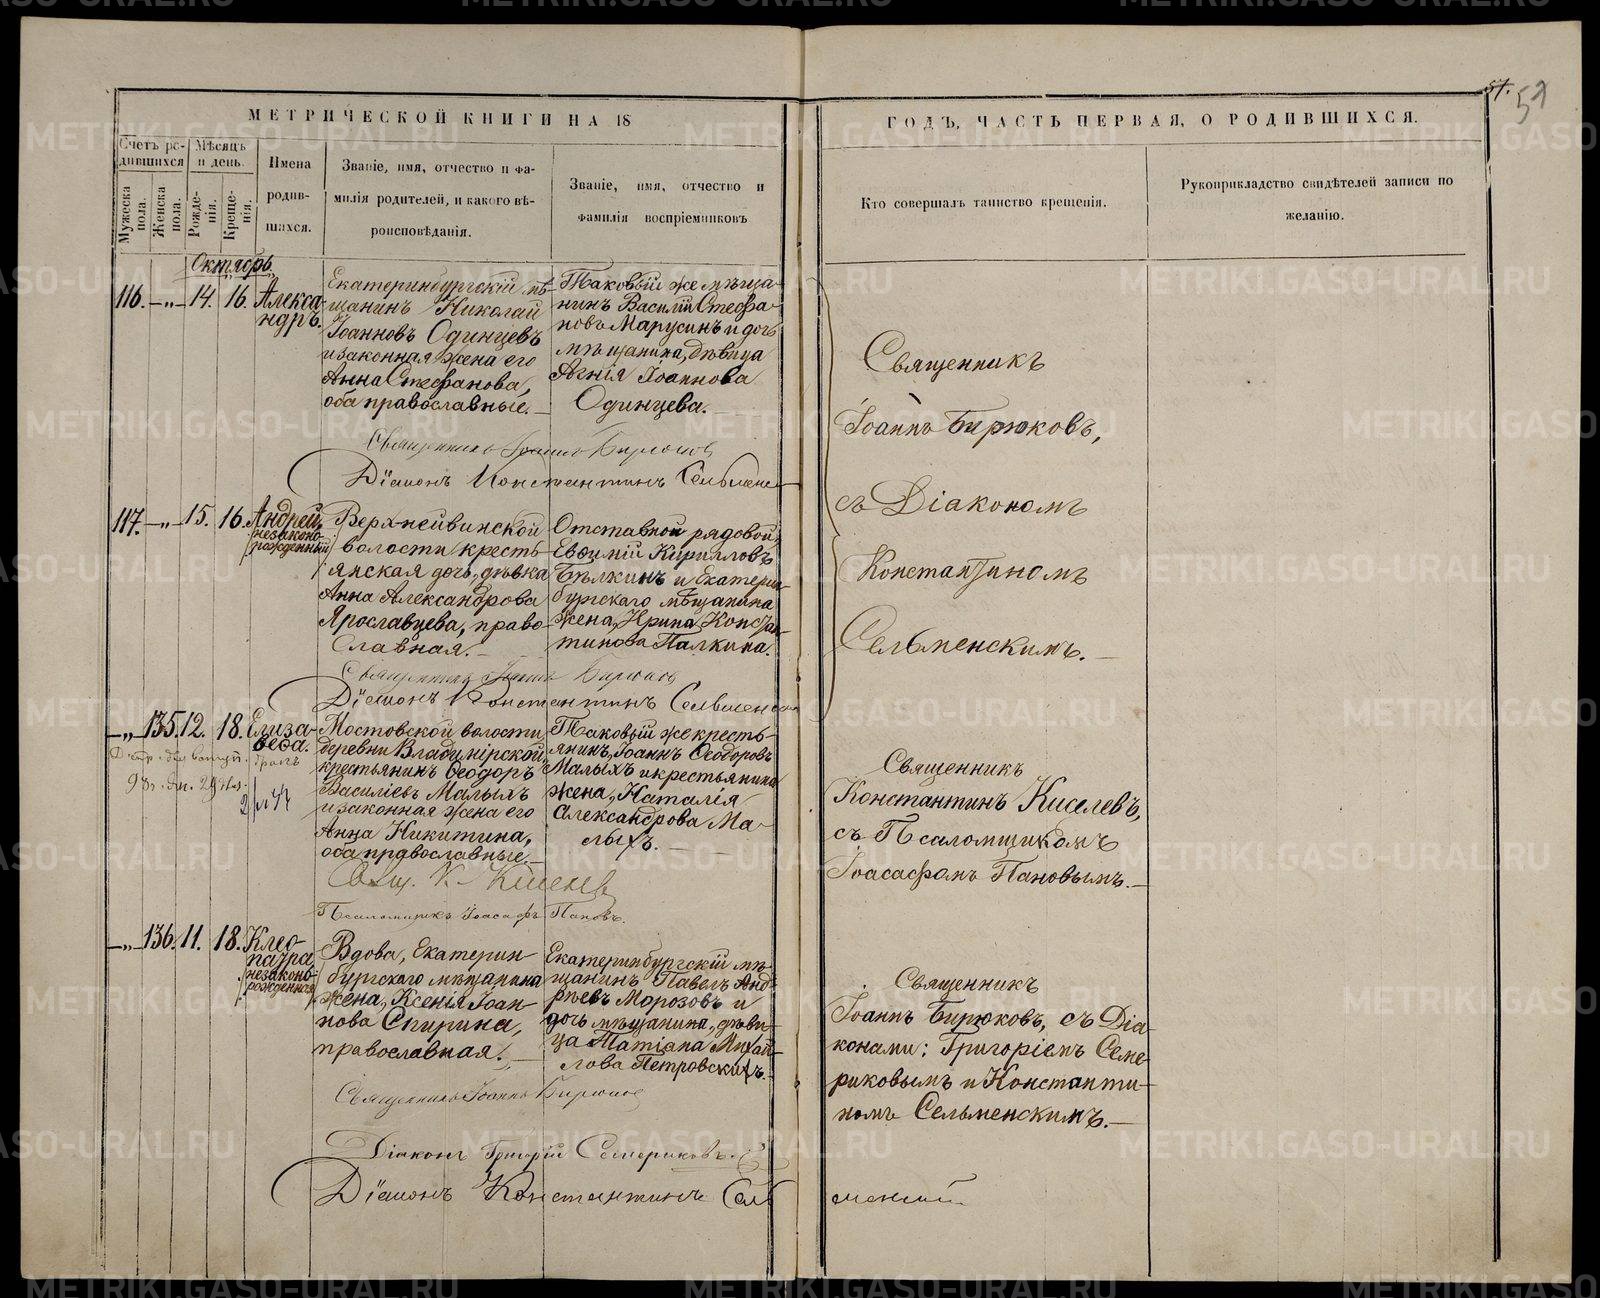 57.
МЕТРИЧЕСКОЙ КНИГИ НА 18
ГОДЪ, ЧАСТЬ ПЕРВАЯ, О РОДИВШИХСЯ.
Счетъ ро-
дившихся
Мѣсяцъ
и день.
Мужеска
пола.
Женска
пола.
Рожде-
нія.
Креще-
нія.
Имена
родив-
шихся.
Званіе, имя, отчество и фа-
милія родителей, и какого вѣ-
роисповѣданія.
Званіе, имя, отчество и
фамилія воспріемниковъ
Кто совершалъ таинство крещенія.
Рукоприкладство свидѣтелей записи по
желанію.
Октябрь.
116. — „ — 14. 16. Алекса
ндръ.
Екатеринбургскій мѣ-
щанинъ Николай
Іоанновъ Одинцевъ
и законная жена его
Анна Стефанова,
оба православные.
Таковый же мѣща-
нинъ Василій Стефа-
новъ Марусинъ и дочь
мѣщанина, дѣвица
Агнія Іоаннова
Одинцева.
Священникъ
Іоаннъ Бирюковъ,
съ Діакономъ
Константиномъ
Сельменскимъ.
Священникъ Іоаннъ Бирюковъ
Діаконъ Константинъ Сельменс
117. — „ — 15. 16. Андрей,
незаконо-
рожденный
Верхнейвинской
волости кресть-
янская дочь, дѣвка
Анна Александрова
Ярославцева, право-
славная.
Отставной рядовой,
Евѳимій Кирилловъ
Бѣлкинъ и Екатерин-
бургскаго мѣщанина
жена, Ирина Констан-
тинова Палкина.
Священникъ Іоаннъ Бирюковъ
Діаконъ Константинъ Сельменск
— „ — 135. 12. 18. Елиза-
веѳа.
Мостовской волости,
деревни Владимірской,
крестьянинъ Ѳеодоръ
Василіевъ Малыхъ
и законная жена его
Анна Никитина,
оба православные.
Таковый же кресть-
янинъ, Іоаннъ Ѳеодоровъ
Малыхъ и крестьянина
жена, Наталія
Александрова Ма-
лыхъ.
Священникъ
Константинъ Киселевъ,
съ Псаломщикомъ
Іоасафомъ Пановымъ.
Свящ. К. Киселев
Псаломщикъ Іоасафъ Пановъ.
— „ — 136. 11. 18. Клео-
патра,
незаконо-
рожденная
Вдова, Екатерин-
бургскаго мѣщанина
жена, Ксенія Іоан-
нова Спирина,
православная.
Екатеринбургскій мѣ-
щанинъ Павелъ Анд-
реевъ Морозовъ и
дочь мѣщанина, дѣви-
ца Татіана Михай-
лова Петровскихъ.
Священникъ
Іоаннъ Бирюковъ, съ Діа-
конами: Григоріемъ Семе-
риковымъ и Константи-
номъ Сельменскимъ.
Священникъ Іоаннъ Бирюков
Діаконъ Григорій Семериковъ.
Діаконъ Константинъ Сель
менскій